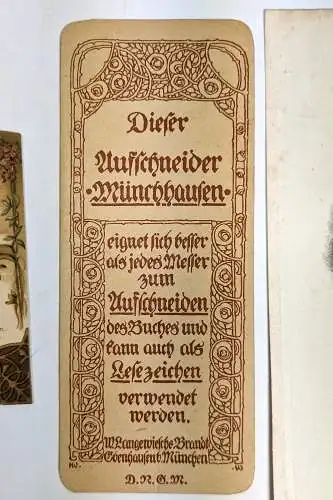 Dieser
Aufschneider
·Münchhausen·
eignet sich besser
als jedes Messer
zum
Aufschneiden
des Buches und
kann auch als
Lesezeichen
verwendet
werden.
W. Langewiesche-Brandt
Ebenhausen b. München
D.R.G.M.